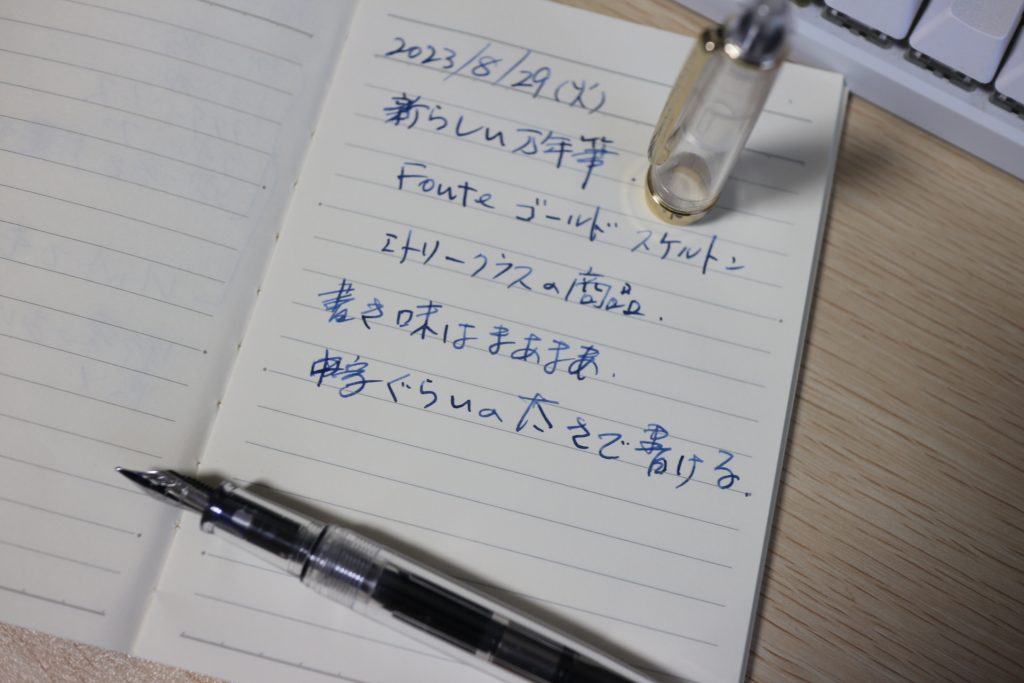 2023/8/29(火)
新らしい万年筆.
Fonte ゴールド スケルトン
エトリークラスの商品.
書き味はまあまあ.
中字ぐらいの太さで書ける.